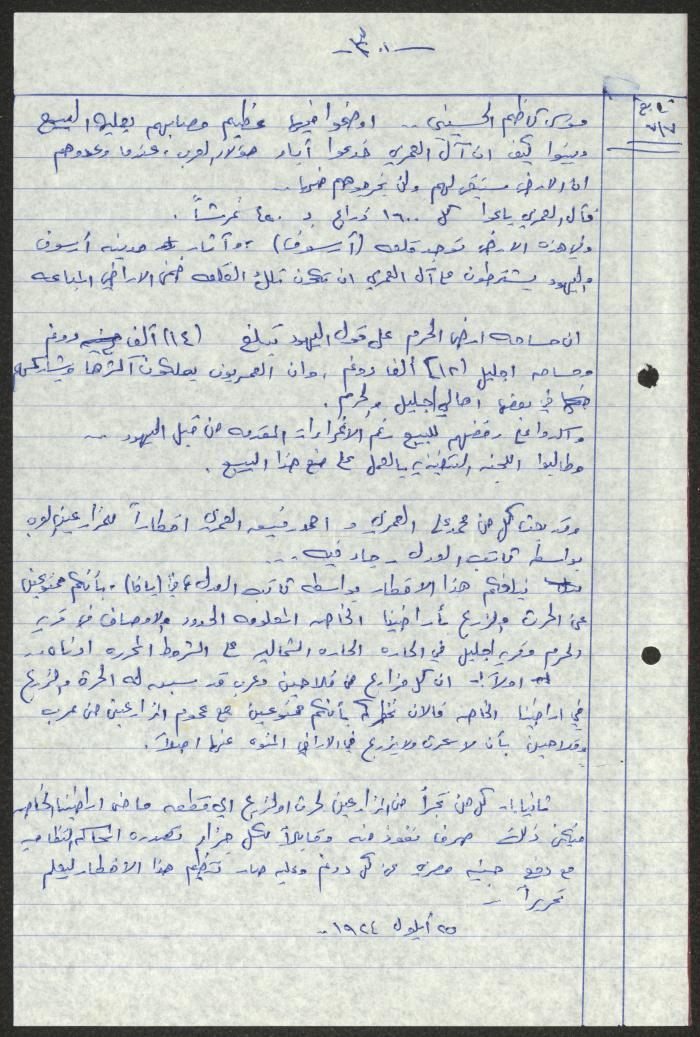 - ٣٠١ -
تابع
٧/٧
موسى كاظم الحسيني .. اوضحوا فيها عظيم مصابهم بعملية البيع
وبينوا كيف ان آل العمري خدعوا أباء هؤلاء العرب ، عندما وعدوهم
ان الارض ستبقى لهم ولن يخرجوهم منها ..
فآل العمري باعوا كل ١٦٠٠ ذراع بـ ٤٥٠ غرشاً .
وفي هذه الارض توجد قلعة (أرسوف) ، وآثار مدينة أرسوف
واليهود يشترطون على آل العمري ان تكون تلك القلعة ضمن الاراضي المباعة
ان مساحة ارض الحرم على قول اليهود تبلغ (١٤) ألف دونم
ومساحة اجليل (١٢) ألفا دونم ، وان العمريون يملكون أكثرها ويشاركهم
في بعضها اهالي اجليل والحرم .
وأكدوا على رفضهم للبيع رغم الاغراءات المقدمة من قبل اليهود ..
وطالبوا اللجنة التنفيذية بالعمل على منع هذا البيع .
وقد بعث كل من محمد علي العمري و احمد رفيق العمري اخطاراً للمزارعين العرب
بواسطة كاتب العدل .. جاء فيه ...
نبلغكم هذا الاخطار بواسطة كاتب العدل في (يافا) ، بأنكم ممنوعين
عن الحرث والزرع بأراضينا الخاصة المعلومة الحدود والاوصاف في قرية
الحرم وقرية اجليل في الحارة الحارة الشمالية على الشروط المحررة ادناه ..
اولاً :- ان كل مزارع من فلاحين وعرب قد سبق له الحرث والزرع
في اراضينا الخاصة فالان نخطركم بأنكم ممنوعين مع عموم المزارعين من عرب
وفلاحين بأن لا يحرث ولا يزرع في الاراضي المنوه عنها اصلاً .
ثانيا :- كل من تجرأ من المزارعين لحرث او لزرع اي قطعة ما ضمن اراضينا الخاصة
فيكون ذلك صرف نفوذ منه وقابلاً لكل جزاء تصدره المحاكم النظامية
مع دفع جنيه مصري عن كل دونم وعليه صار تنظيم هذا الاخطار ليعلم
تحريراً -
٢٥ أيلول ١٩٢٤ ..